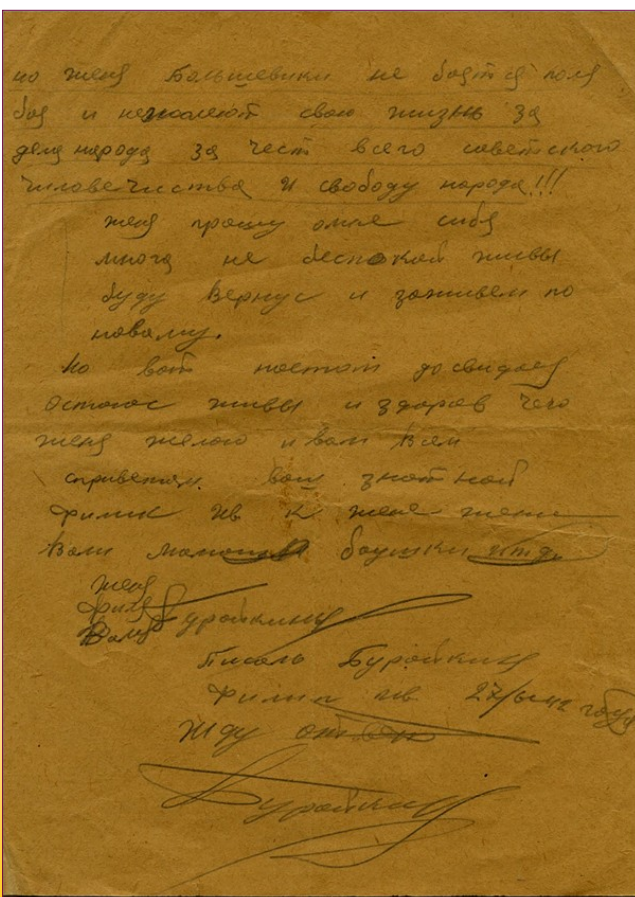 но женя Большевики не боятся поля
боя и нежалеют свою жизнь за
дела народа за чест всего советского
человечиства и свободу народа!!!
женя прошу омне сибя
многа не беспокой живы
буду Вернус и заживем по
новаму.
Но вот поетом досвидаея
Остаюс живы и здоров чего
женя желаю и вам Всем
сприветом. ваш знатной
Филип ив к жене жени
Вали мамаши баушки итд.
женя
Филя
Валя
Бурайкины
Писал Бурайкин
Филип ив 27/ 42 году
Жду ответ
Бурайкин